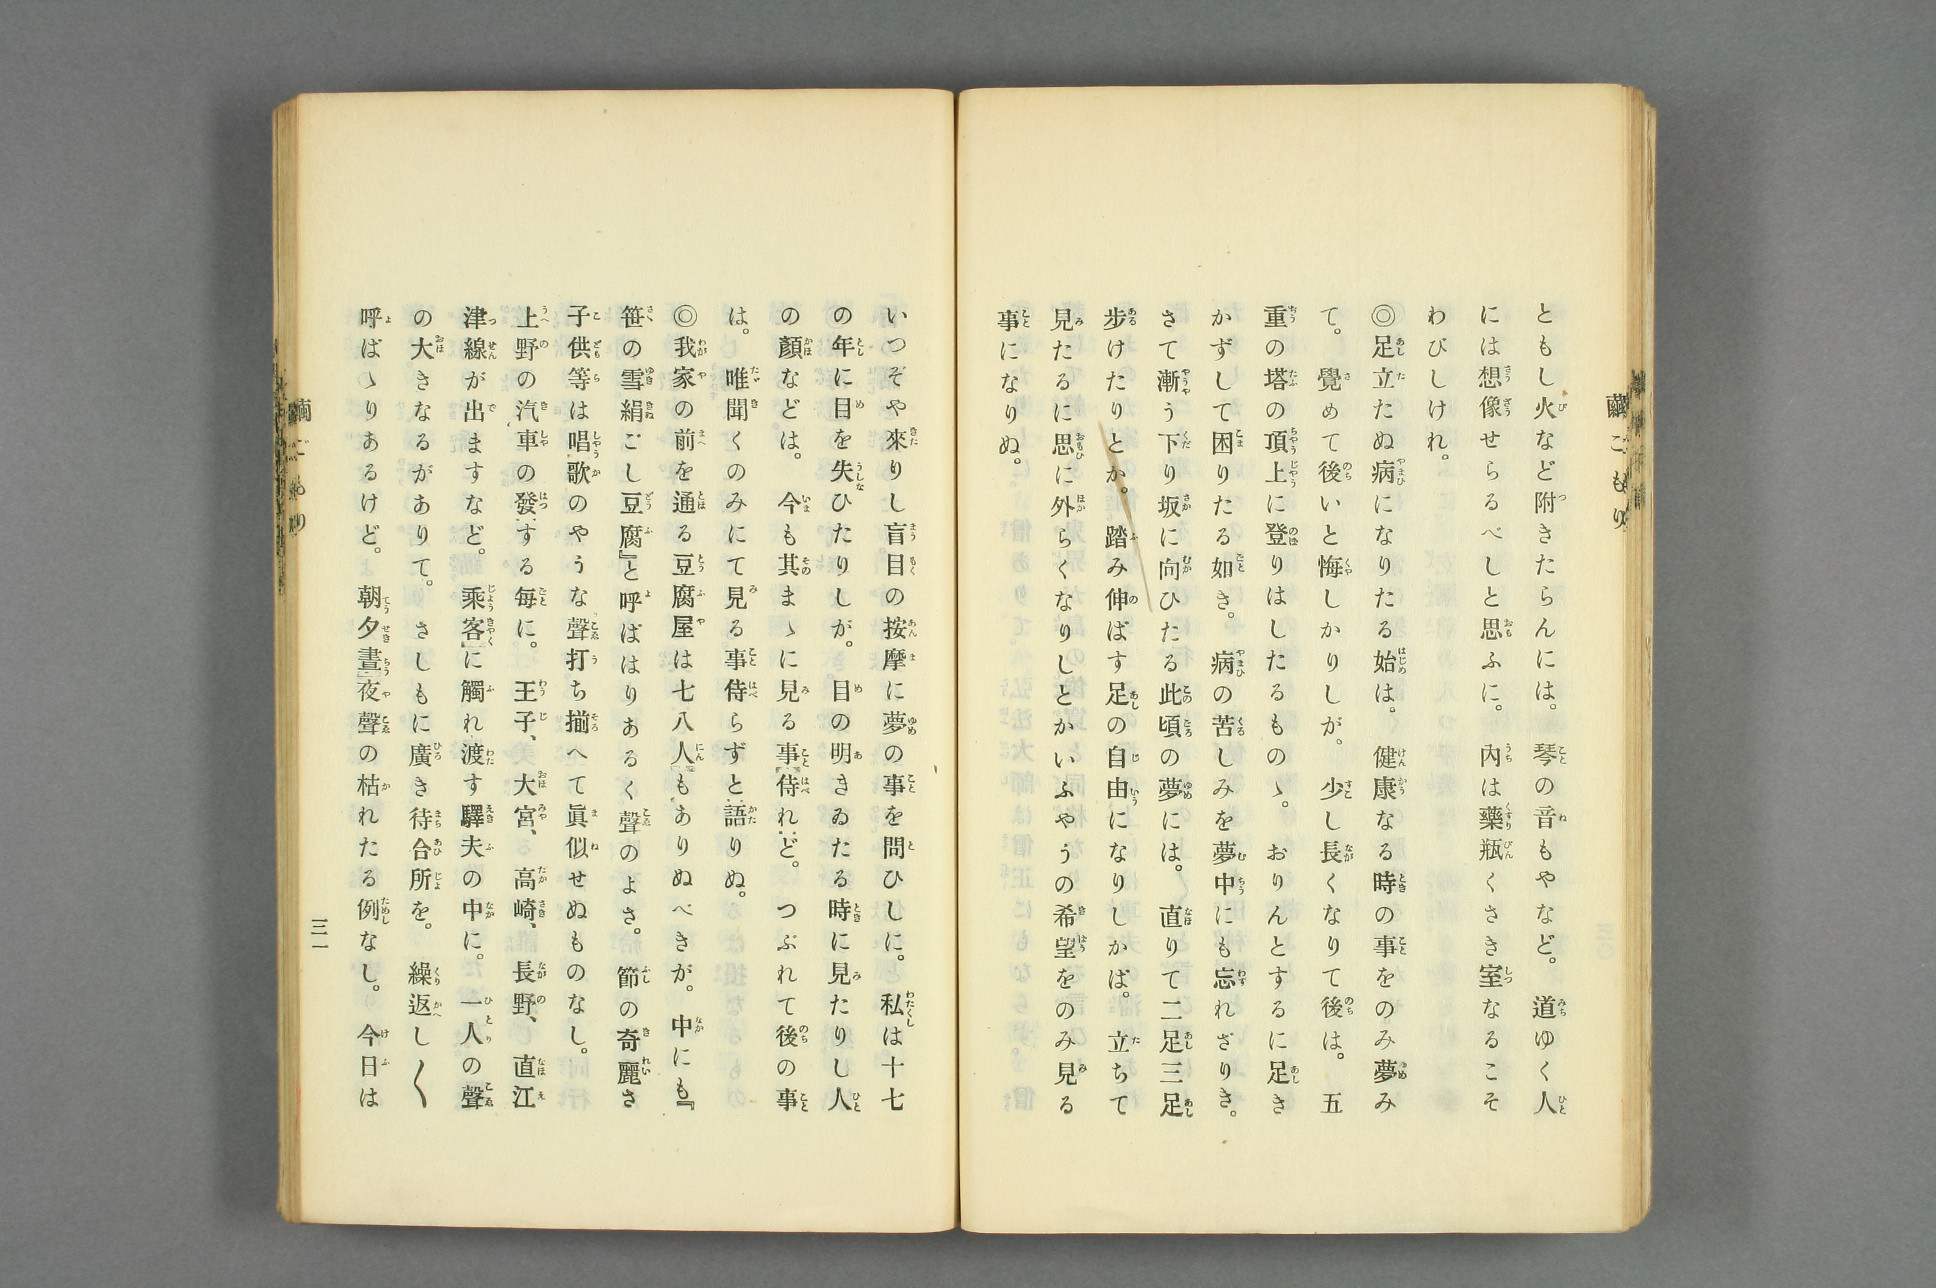 繭ごもり
ともし火など附きたらんには。琴の音もやなど。道ゆく人
には想像せらるべしと思ふに。内は藥瓶くさき室なるこそ
わびしけれ。
◎足立たぬ病になりたる始は。健康なる時の事をのみ夢み
て。覺めて後いと悔しかりしが。少し長くなりて後は。五
重の塔の頂上に登りはしたるものゝ。おりんとするに足き
かずして困りたる如き。病の苦しみを夢中にも忘れざりき。
さて漸う下り坂に向ひたる此頃の夢には。直りて二足三足
歩けたりとか。踏み伸ばす足の自由になりしかば。立ちて
見たるに思に外らくなりしとかいふやうの希望をのみ見る
事になりぬ。
いつぞや來りし盲目の按摩に夢の事を問ひしに。私は十七
の年に目を失ひたりしが。目の明きゐたる時に見たりし人
の顏などは。今も其まゝに見る事侍れど。つぶれて後の事
は。唯聞くのみにて見る事侍らずと語りぬ。
◎我家の前を通る豆腐屋は七八人もありぬべきが。中にも『
笹の雪絹ごし豆腐』と呼ばはりあるく聲のよさ。節の奇麗さ
子供等は唱歌のやうな聲打ち揃へて眞似せぬものなし。
上野の汽車の發する每に。王子、大宮、高崎、長野、直江
津線が出ますなど。乘客に觸れ渡す驛夫の中に。一人の聲
の大きなるがありて。さしもに廣き待合所を。繰返し〱
呼ばゝりあるけど。朝夕晝夜聲の枯れたる例なし。今日は
繭ごもり
三一